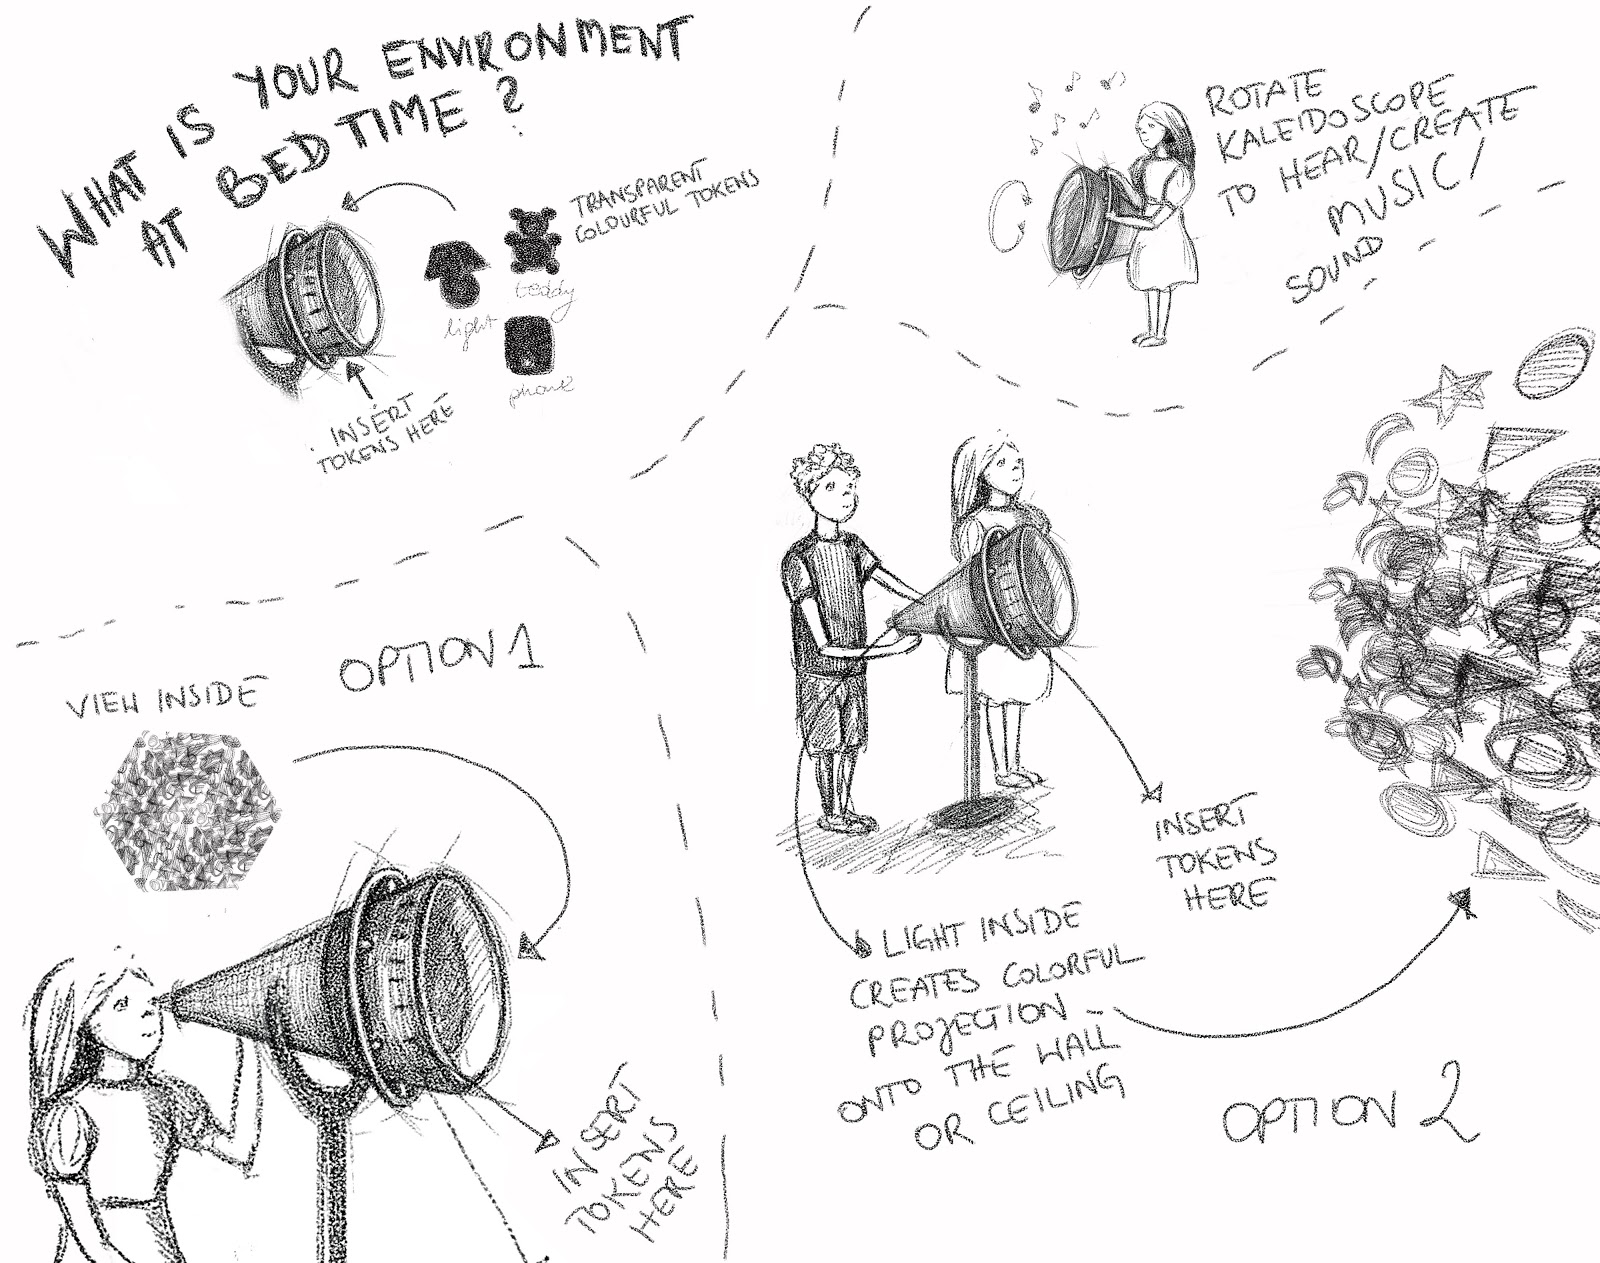 WHAT IS YOUR ENVIRONMENT
AT BEDTIME ?
TRANSPARENT
COLOURFUL TOKENS
teddy
light
phone
INSERT
TOKENS HERE
ROTATE
KALEIDOSCOPE
TO HEAR/CREATE
MUSIC/
SOUND
OPTION 1
VIEW INSIDE
INSERT
TOKENS
HERE
INSERT
TOKENS
HERE
LIGHT INSIDE
CREATES COLORFUL
PROJECTION
ONTO THE WALL
OR CEILING
OPTION 2